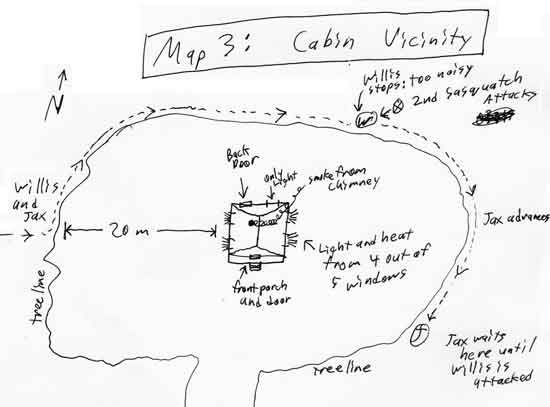 Map 3: Cabin Vicinity
N
Willis
stops: too noisy
W
2nd sasquatch
Attacks
Back
Door
only
light
smoke from
chimney
Willis
and
Jax
20 m
Jax advances
Light and heat
from 4 out of
5 windows
front porch
and door
treeline
J
Jax waits
here until
Willis is
attacked
treeline